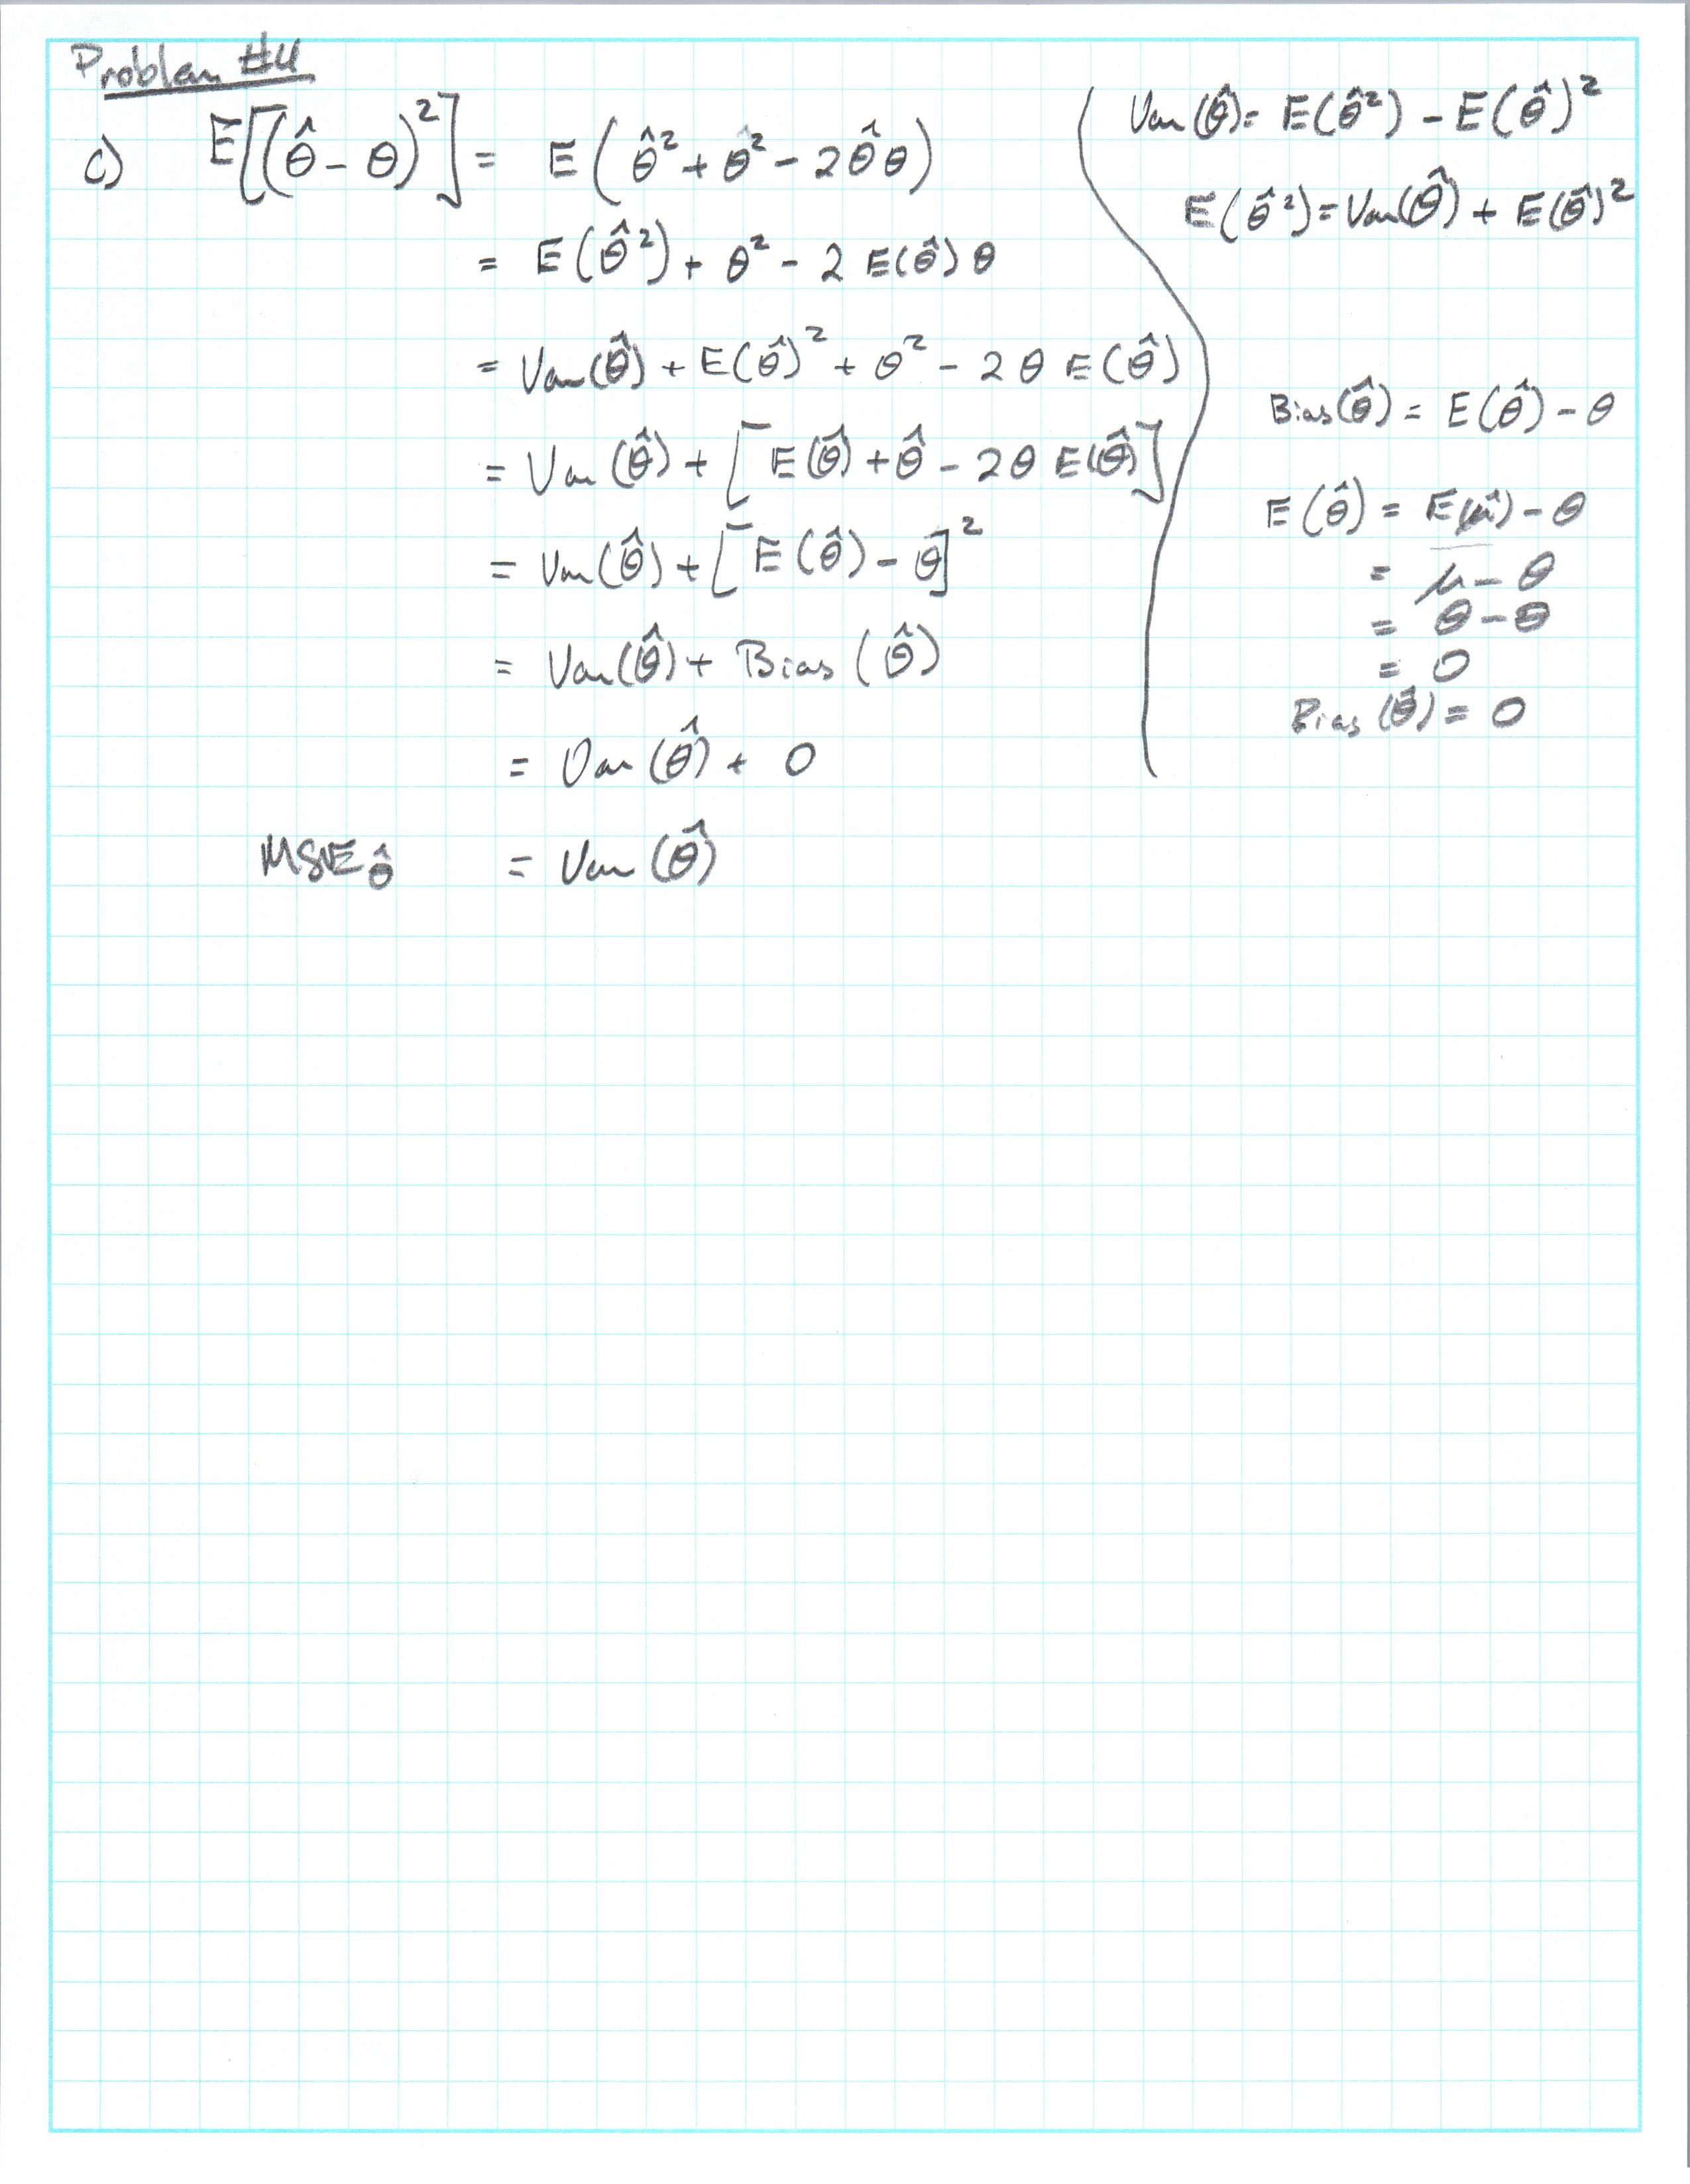 Problem #4
c) E[(θ̂ - θ)²] = E(θ̂² + θ² - 2θ̂θ)
= E(θ̂²) + θ² - 2 E(θ̂) θ
= Var(θ̂) + E(θ̂)² + θ² - 2 θ E(θ̂)
= Var(θ̂) + [E(θ̂) + θ̂ - 2θ E(θ̂)]
= Var(θ̂) + [E(θ̂) - θ]²
= Var(θ̂) + Bias(θ̂)
= Var(θ̂) + 0
MSE θ̂ = Var(θ̂)
Var(θ̂) = E(θ̂²) - E(θ̂)²
E(θ̂²) = Var(θ̂) + E(θ̂)²
Bias(θ̂) = E(θ̂) - θ
E(θ̂) = E(μ̂) - θ
= μ - θ
= θ - θ
= 0
Bias(θ̂) = 0